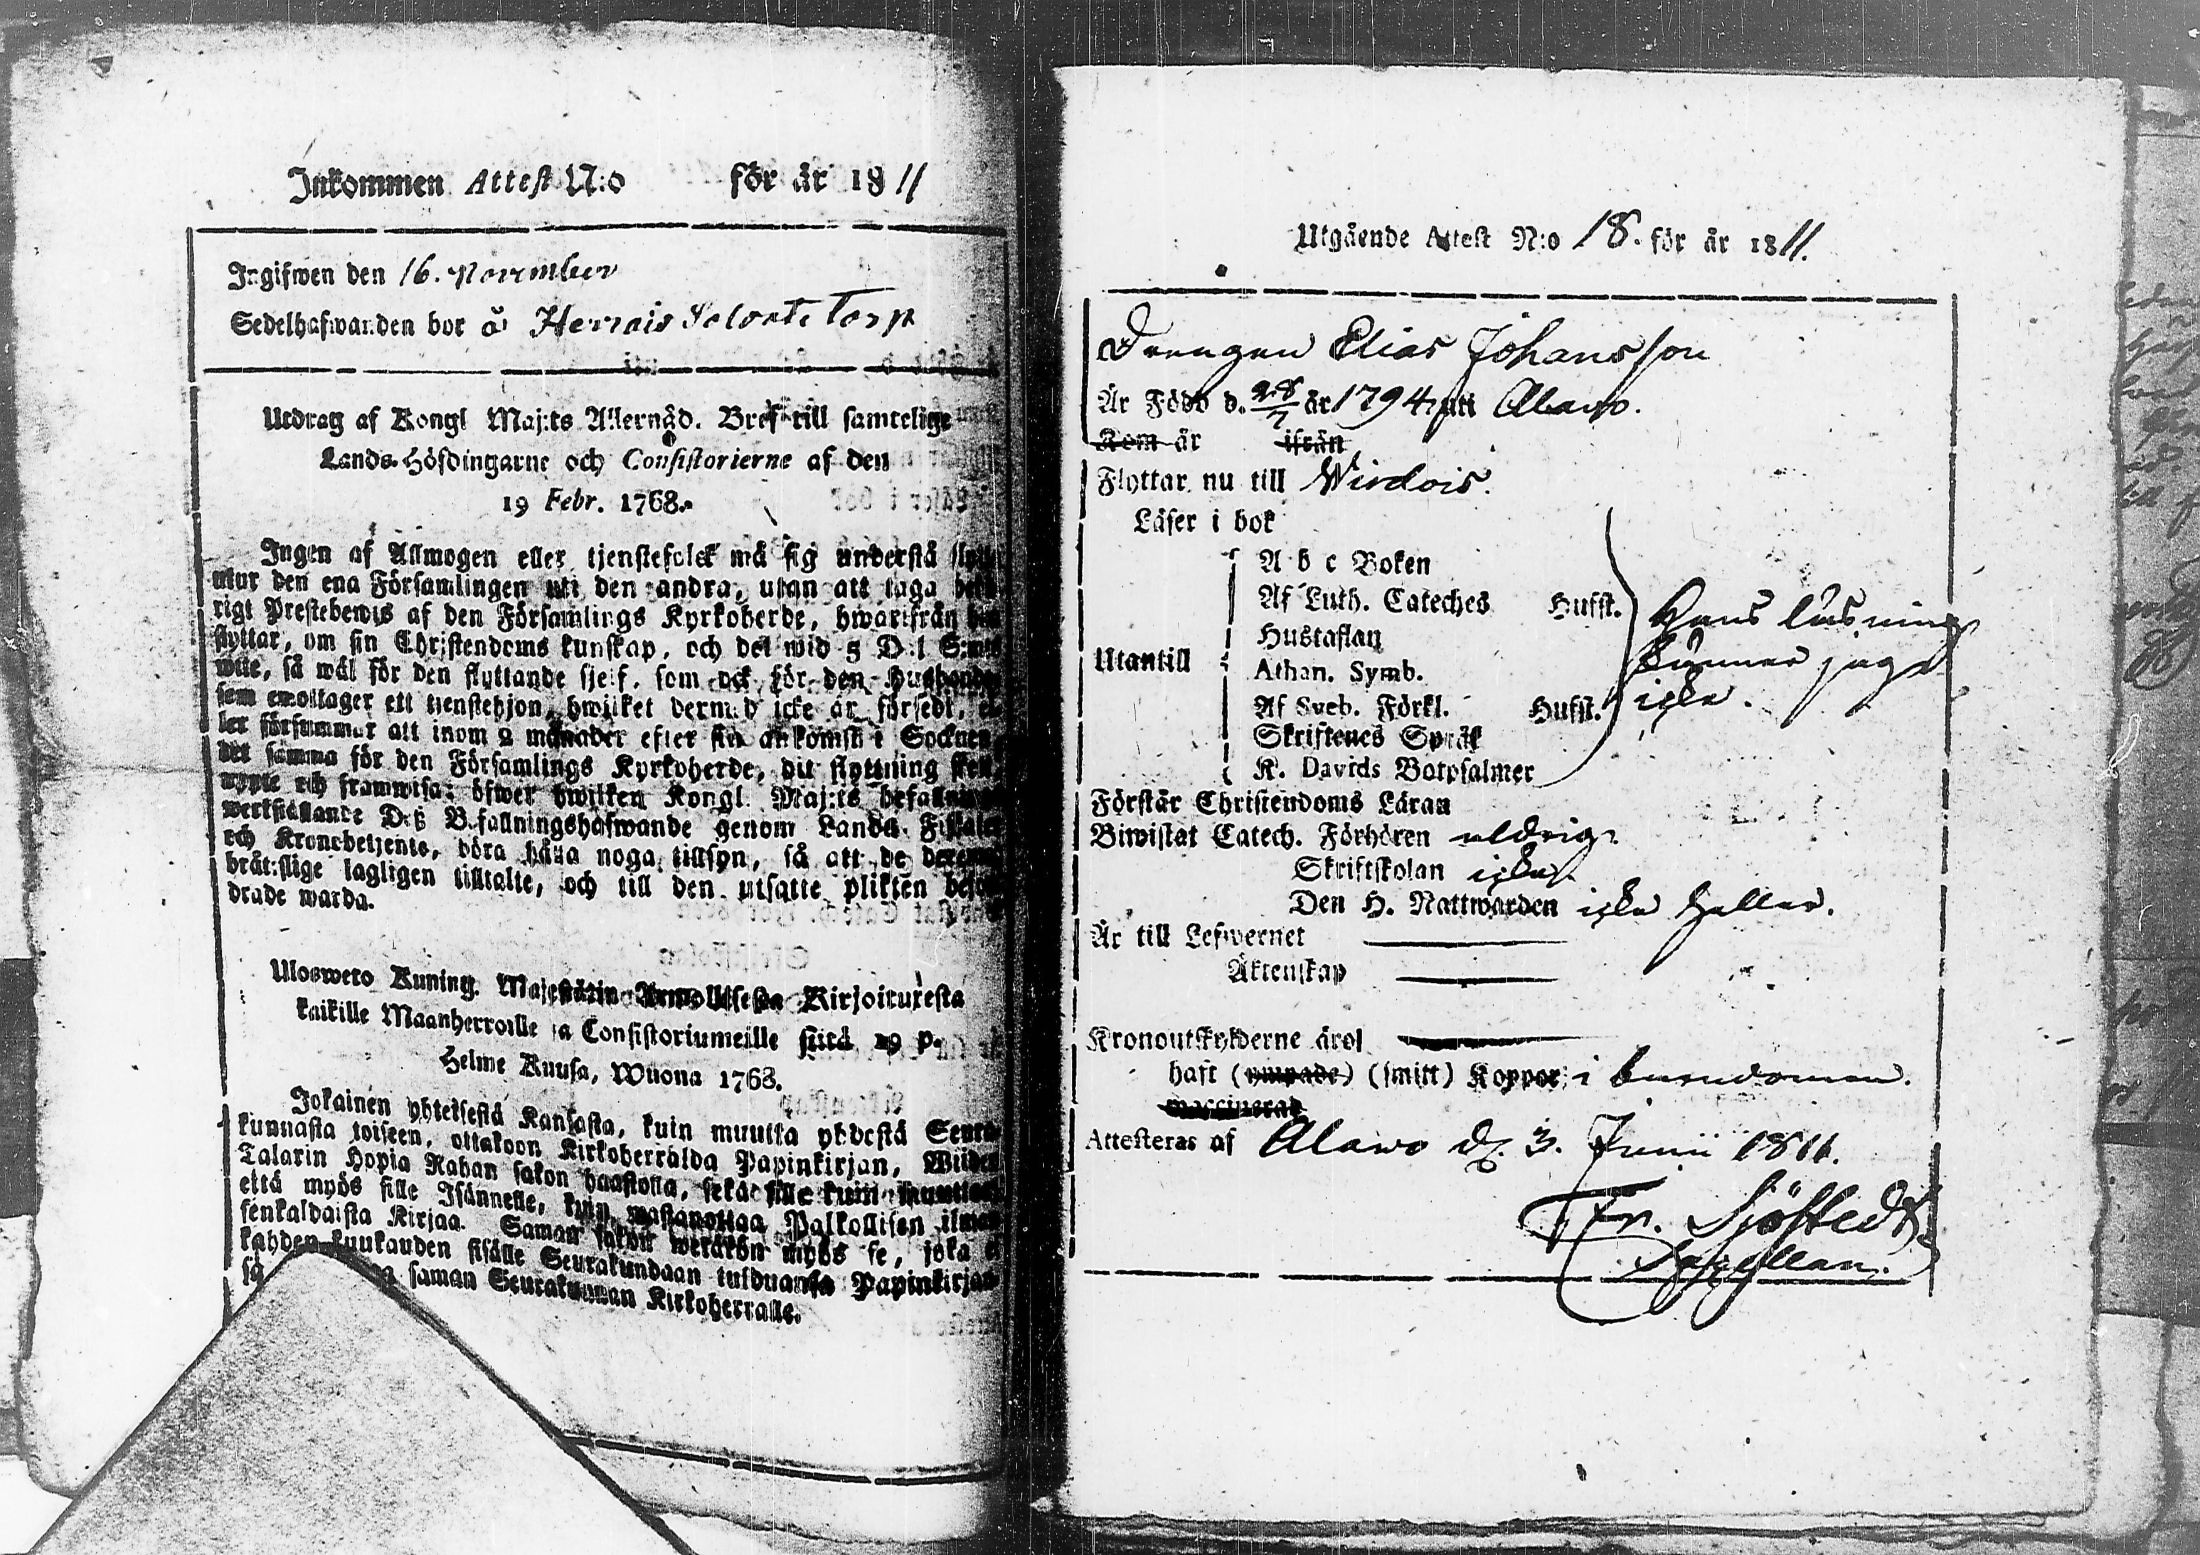 Inkommen Attest N:o för år 1811
Ingifwen den 16. November
Sedelhafwanden bor å Herrais Torp
Utdrag af Kongl Maj:ts Allernåd. Bref till samtelige
Lands-Höfdingarne och Consistorierne af den
19 Febr. 1768.
Ingen af Allmogen eller tjenstefolck må sig understå flytta
utur den ena Församlingen uti den andra, utan att taga behö-
rigt Prestebewis af den Församlings Kyrkoherde, hwarifrån han
flyttar, om sin Christendoms kunskap, och det wid 5 D:l S:mts
wite, så wäl för den flyttande sjelf, som ock för den Husbonde
som emottager ett tjenstehjon, hwilket dermed icke är försedt, el-
ler försummar att inom 2 månader efter sin ankomst i Socknen
det samma för den Församlings Kyrkoherde, dit flyttning sker,
uppte och framwisa; öfwer hwilken Kongl. Maj:ts befallning
werkställande Deß Befallningshafwande genom Lands-Fiskaler
och Kronobetjente, böra hålla noga tillsyn, så att de deremot
brätslige lagligen tilltalte, och till den utsatte plikten befor-
drade warda.
Ulosweto Kuning. Majestätin Armollisesta Kirjoituxesta
kaikille Maanherroille ja Consistoriumeille siitä 19 p.
Helme Kuusa, Wuona 1768.
Jokainen yhteisestä Kansasta, kuin muutta yhdestä Seura-
kunnasta toiseen, ottakoon Kirkoherralda Papinkirjan, Wiiden
Talarin Hopia Rahan sakon haastolla, sekä sille kuin muuttaa
että myös sille Isännelle, kuin wastanottaa Palkollisen ilman
senkaldaista Kirjaa. Saman sakon wetäkön myös se, joka ei
kahden kuukauden sisälle Seurakundaan tulduansa Papinkirjan-
sa saman Seurakunnan Kirkoherralle.
Utgående Attest N:o 18. för år 1811.
Drengen Elias Johansson
Är Född d. 28/7 år 1794 uti Alavo.
Kom år ifrån
Flyttar nu till Wirdois.
Läser i bok
A b c Boken
Af Luth. Cateches Hufst.
Hustaflan
Utantill Athan. Symb.
Af Sveb. Förkl. Hufst.
Skriftenes Språk
K. Davids Botpsalmer
Hans läsning
känner jag
icke.
Förstår Christendoms Läran
Biwistat Catech. Förhören aldrig.
Skriftskolan icke.
Den H. Nattwarden icke heller.
Är till Lefwernet
Äktenskap
Kronoutskylderne äro
haft (ympade) (smitt) Koppor i barndomen.
vaccinerad
Attesteras af Alawo d. 3. Junii 1811.
Fr. Sjöstedt
Capellan.